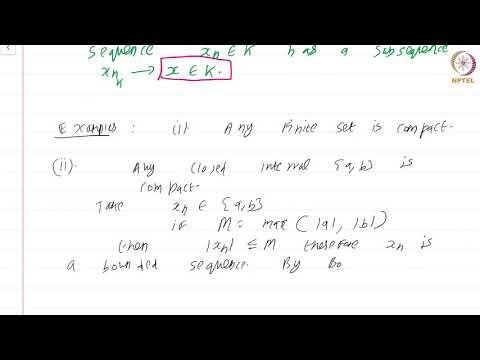 sequence xn ∈ K has a subsequence
xnk → x ∈ K.
NPTEL
Examples : (i). Any finite set is compact.
(ii). Any closed interval [a,b] is
compact.
Take xn ∈ [a,b]
if M = max (|a|, |b|)
then |xn| ≤ M therefore xn is
a bounded sequence. By Bo